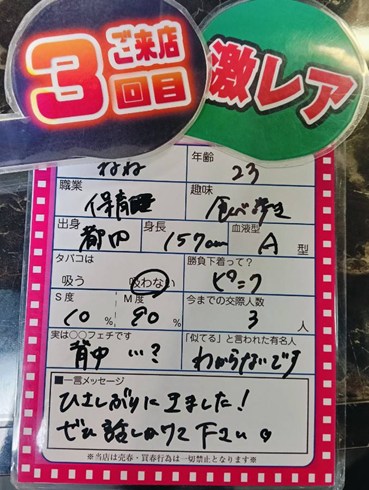 3
ご来店
回目
激レア
ねね
年齢
23
職業
保育
趣味
食べ歩き
出身
都内
身長
157cm
血液型
A 型
タバコは
吸う
吸わない
勝負下着って?
ピンク
S度
10 %
M度
90 %
今までの交際人数
3 人
実は○○フェチです
背中 い?
「似てる」と言われた有名人
わからないです
■一言メッセージ
ひさしぶりに来ました!
ぜひ話しかけて下さい
※当店は売春・買春行為は一切禁止となります※